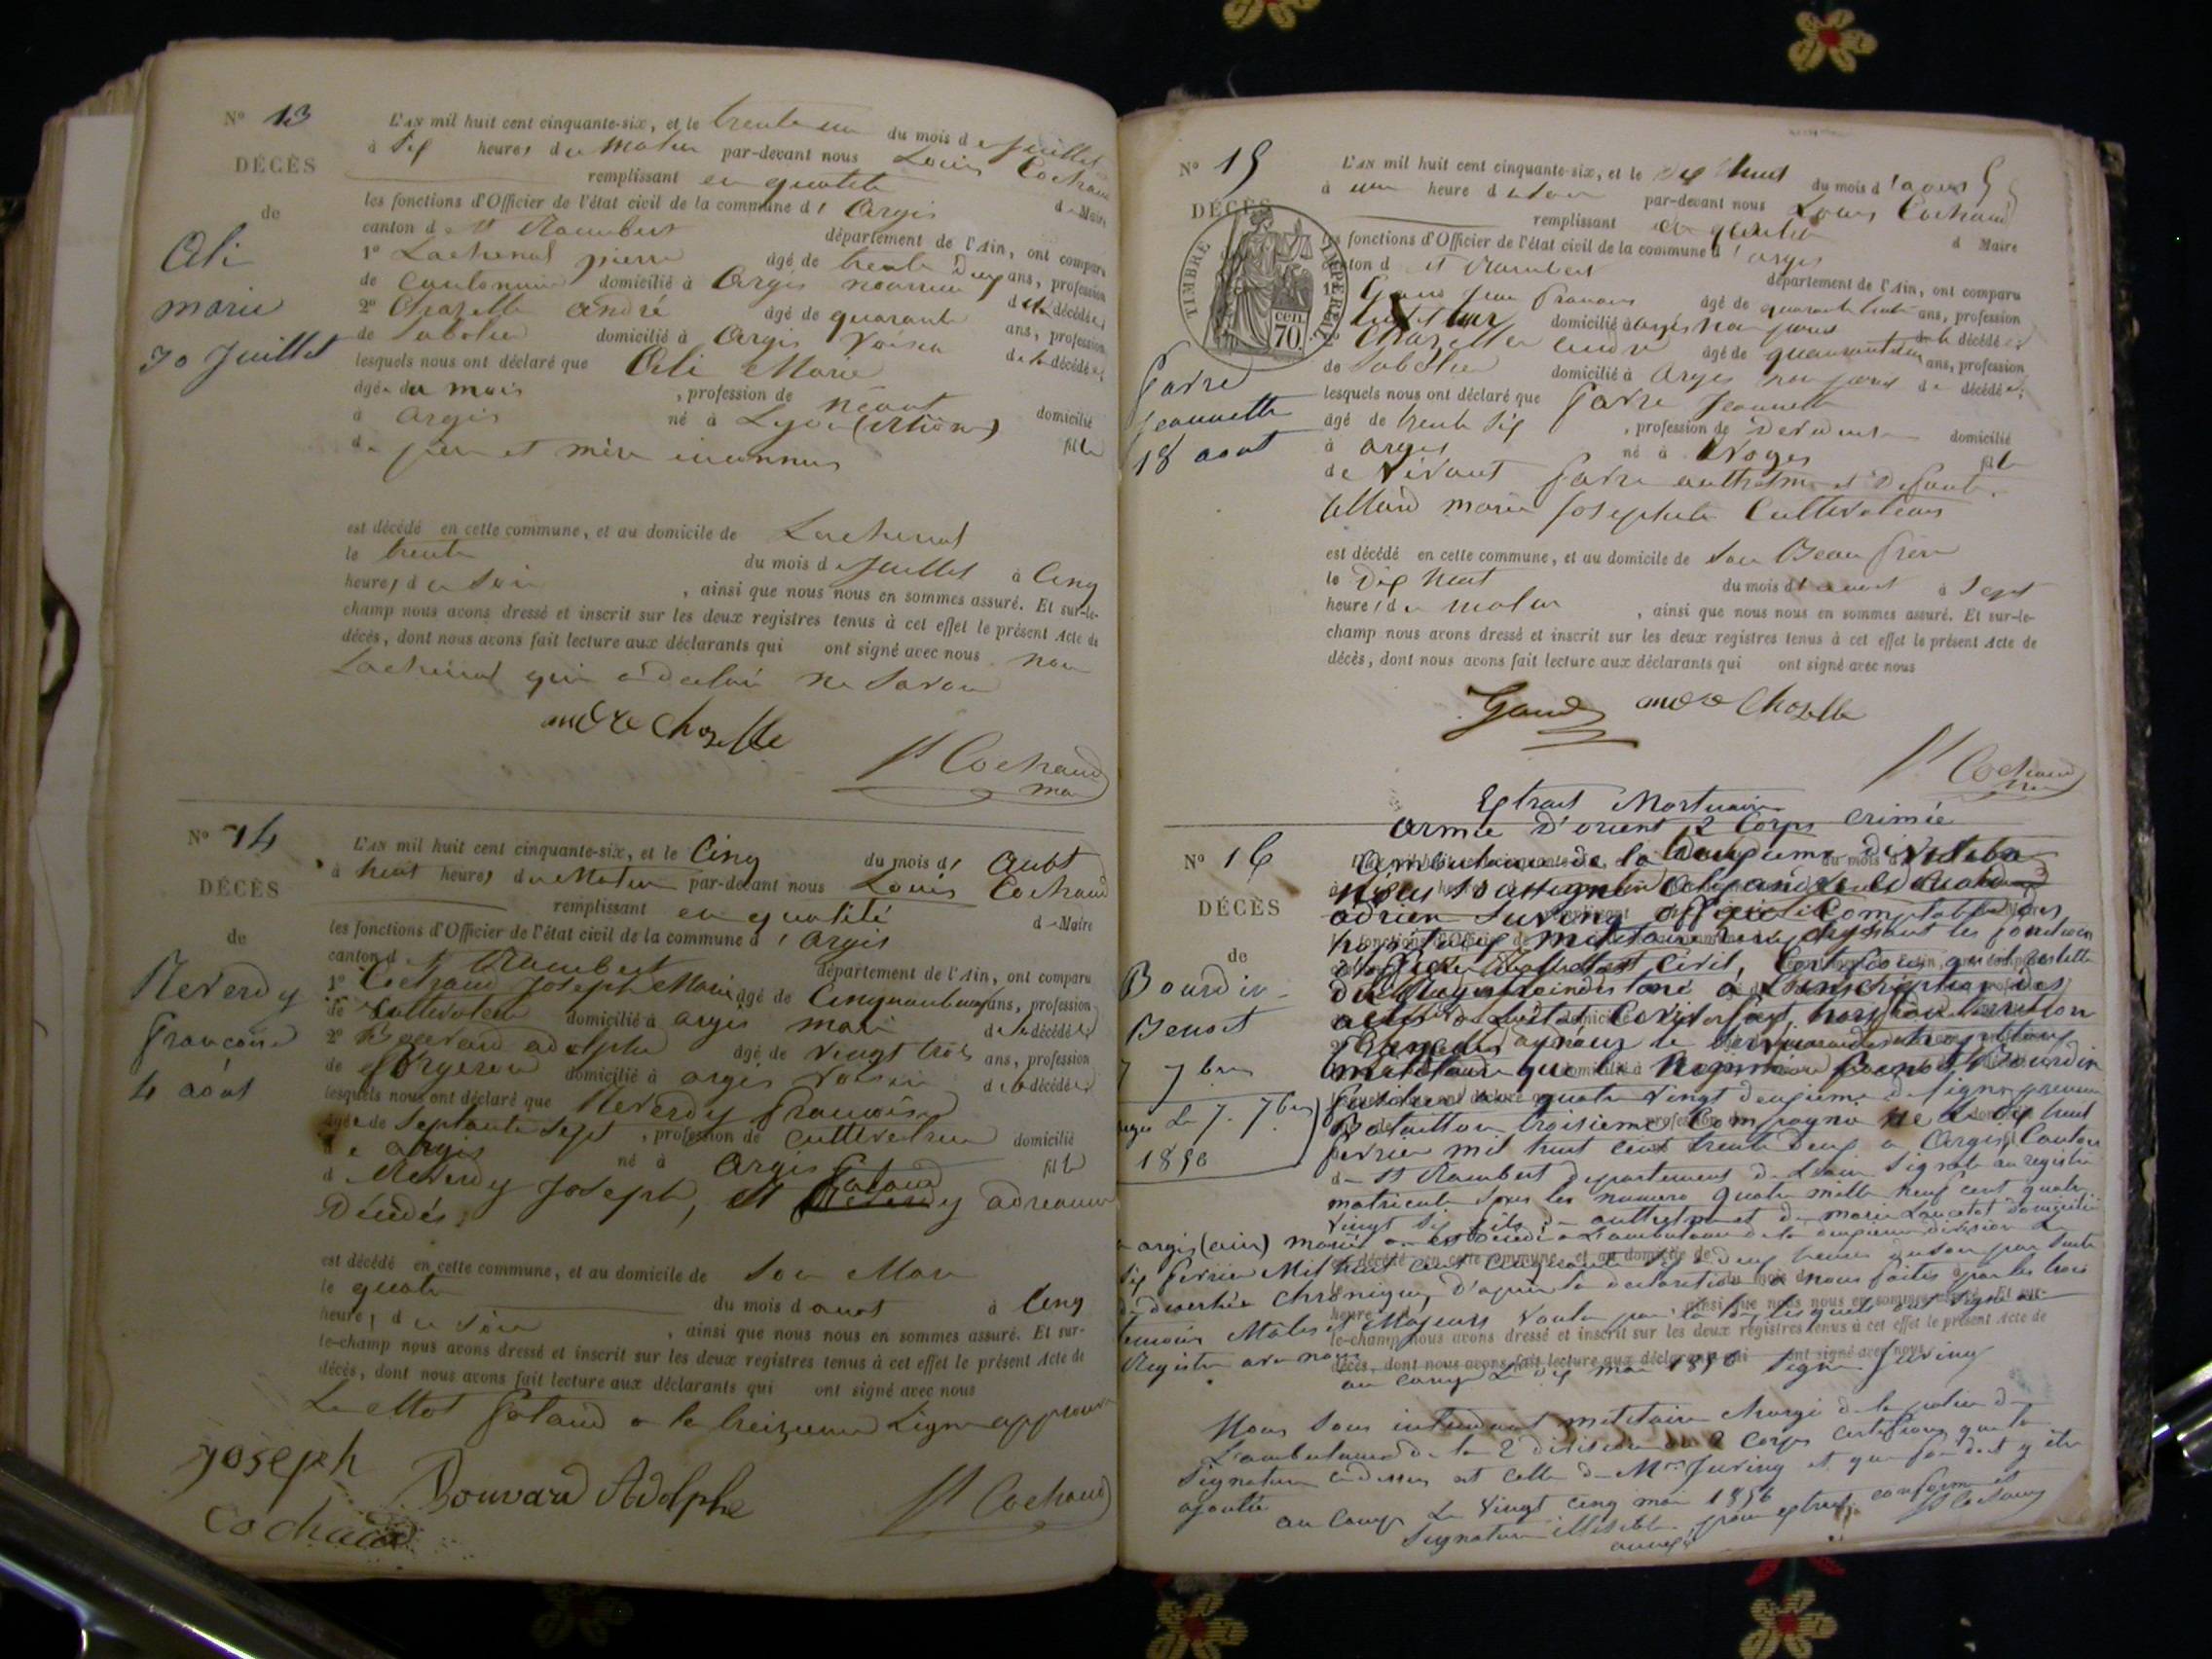 N° 13
DÉCÈS
de
Oli
marie
30 Juillet
L'AN mil huit cent cinquante-six, et le trente un du mois de Juillet
à dix heures du Matin par-devant nous Louis Cochaud
remplissant en qualité de Maire
les fonctions d'Officier de l'état civil de la commune d'Argis
canton de St Rambert département de l'Ain, ont comparu
1° Lachenal pierre âgé de trente deux ans, profession
de domicilié à Argis de la décédée;
2° Chazelle andré âgé de quarante ans, profession
de Sabotier domicilié à Argis Voisin de la décédée;
lesquels nous ont déclaré que Oli Marie
âgée du mois, profession de néant domicilié
à argis né à Lyon (Rhône) fille
de père et mère inconnus
est décédé en cette commune, et au domicile de Lachenal
le trente du mois de Juillet à Cinq
heures du Soir, ainsi que nous nous en sommes assuré. Et sur-le-
champ nous avons dressé et inscrit sur les deux registres tenus à cet effet le présent Acte de
décès, dont nous avons fait lecture aux déclarants qui ont signé avec nous non
Lachenal qui a déclaré ne Savoir
andre Chazelle
Ls Cochaud
N° 14
DÉCÈS
de
Reverdy
françoise
4 août
L'AN mil huit cent cinquante-six, et le Cinq du mois d'Août
à huit heures du Matin par-devant nous Louis Cochaud
remplissant en qualité de Maire
les fonctions d'Officier de l'état civil de la commune d'Argis
canton de St Rambert département de l'Ain, ont comparu
1° Cochaud Joseph Marie âgé de ans, profession
de Cultivateur domicilié à argis mari de la décédée;
2° Bouvard adolphe âgé de Vingt trois ans, profession
de forgeron domicilié à argis Voisin de la décédée;
lesquels nous ont déclaré que Reverdy françoise
âgée de Septante Sept, profession de cultivatrice domicilié
à argis né à Argis fille
de Reverdy Joseph, et Galand adrianne
Décédés;
est décédé en cette commune, et au domicile de Son Mari
le quatre du mois d'aout à Cinq
heures du Soir, ainsi que nous nous en sommes assuré. Et sur-
le-champ nous avons dressé et inscrit sur les deux registres tenus à cet effet le présent Acte de
décès, dont nous avons fait lecture aux déclarants qui ont signé avec nous
Le Mot Galand a la treizieme Ligne approuvé
Joseph
Cochaud
Bouvard Adolphe
Ls Cochaud
N° 15
DÉCÈS
TIMBRE IMPÉRIAL
cen. 70.
Favre
Jeannette
18 aout
L'AN mil huit cent cinquante-six, et le dix huit du mois d'aout
à une heure du Soir par-devant nous Louis Cochaud
remplissant en qualité de Maire
les fonctions d'Officier de l'état civil de la commune d'argis
canton de St Rambert département de l'Ain, ont comparu
1° jean françois âgé de quarante huit ans, profession
domicilié à argis non parent de la décédée;
Chazelle andré âgé de quarante ans, profession
de Sabotier domicilié à Argis non parent de décédée;
lesquels nous ont déclaré que Favre Jeannette
âgé de trente Six, profession de Devideuse domicilié
à argis né à fille
de Vivant favre anthelme et Defunte
marie Josephete Cultivateurs
est décédé en cette commune, et au domicile de Son Beau frère
le Dix huit du mois d'aout à Sept
heures du matin, ainsi que nous nous en sommes assuré. Et sur-le-
champ nous avons dressé et inscrit sur les deux registres tenus à cet effet le présent Acte de
décès, dont nous avons fait lecture aux déclarants qui ont signé avec nous
andre Chazelle
Ls Cochaud
N° 16
DÉCÈS
de
Bourdin
Benoit
7 7bre
le 7. 7bre
1856
Extrait Mortuaire
armée d'orient 2 Corps crimée
ambulance de la Deuxieme division
Nous Soussigné
adrien Juving officier Comptable des
hopitaux militaires les fonctions
d'officier de l'Etat Civil, Certifions qu'il resulte
du Registre destiné a L'inscription des
actes de L'état Civil fait hors du territoire
français
militaire que le Nommé Benoit Bourdin
fusilier au quatre Vingt deuxieme de Ligne premier
Bataillon troisieme Compagnie né Le dix huit
fevrier mil huit cent trente Deux a Argis, Canton
de St Rambert departement de L'ain Signalé au registre
matricule Sous les numero quatre mille neuf cent quatre
Vingt Six fils de anthelme et de marie domicilié
a argis (ain) est Décédé a L'ambulance de la deuxieme division Le
Six fevrier Mil huit cent Cinquante Six a deux heures du Soir par Suite
de diarrhée Chronique, D'apres la declaration a nous faites par les trois
temoins Mâles et Majeurs Voulu par la loi, lesquels ont Signé au
Registre avec nous
au camp Le dix mai 1856 Signé Juving
Nous Sous intendant militaire chargé de la police de
L'ambulance de la 2 division du 2 Corps certifions que la
Signature cidessus est celle de Mr Juving et que foi doit y être
ajoutée au Camp Le Vingt cinq mai 1856
Signature illisible, pour extrait conforme
Ls Cochaud